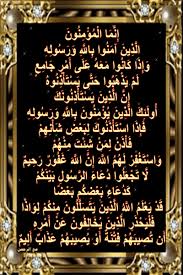 إِنَّمَا الْمُؤْمِنُونَ
الَّذِينَ آمَنُوا بِاللَّهِ وَرَسُولِهِ
وَإِذَا كَانُوا مَعَهُ عَلَى أَمْرٍ جَامِعٍ
لَمْ يَذْهَبُوا حَتَّى يَسْتَأْذِنُوهُ
إِنَّ الَّذِينَ يَسْتَأْذِنُونَكَ
أُولَئِكَ الَّذِينَ يُؤْمِنُونَ بِاللَّهِ وَرَسُولِهِ
فَإِذَا اسْتَأْذَنُوكَ لِبَعْضِ شَأْنِهِمْ
فَأْذَنْ لِمَنْ شِئْتَ مِنْهُمْ
وَاسْتَغْفِرْ لَهُمُ اللَّهَ إِنَّ اللَّهَ غَفُورٌ رَحِيمٌ
لَا تَجْعَلُوا دُعَاءَ الرَّسُولِ بَيْنَكُمْ
كَدُعَاءِ بَعْضِكُمْ بَعْضًا
قَدْ يَعْلَمُ اللَّهُ الَّذِينَ يَتَسَلَّلُونَ مِنْكُمْ لِوَاذًا
فَلْيَحْذَرِ الَّذِينَ يُخَالِفُونَ عَنْ أَمْرِهِ
أَنْ تُصِيبَهُمْ فِتْنَةٌ أَوْ يُصِيبَهُمْ عَذَابٌ أَلِيمٌ